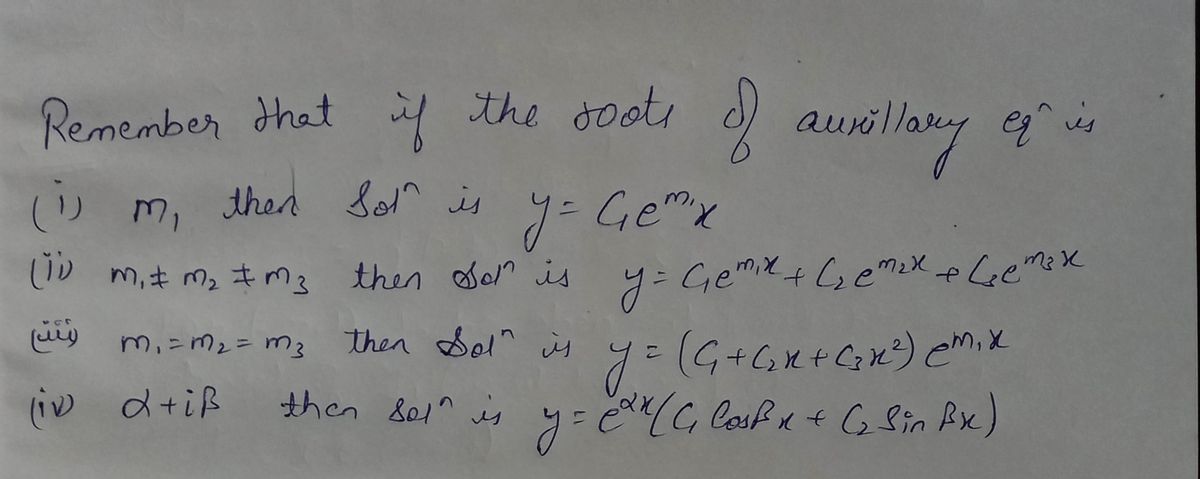 Remember that if the roots of auxillary eqⁿ is
(i) m₁ then Solⁿ is y = C₁e^{m₁x}
(ii) m₁ ≠ m₂ ≠ m₃ then Solⁿ is y = C₁e^{m₁x} + C₂e^{m₂x} + C₃e^{m₃x}
(iii) m₁ = m₂ = m₃ then Solⁿ is y = (C₁ + C₂x + C₃x²) e^{m₁x}
(iv) α + iβ then solⁿ is y = e^{αx}(C₁ Cosβx + C₂ Sin βx)